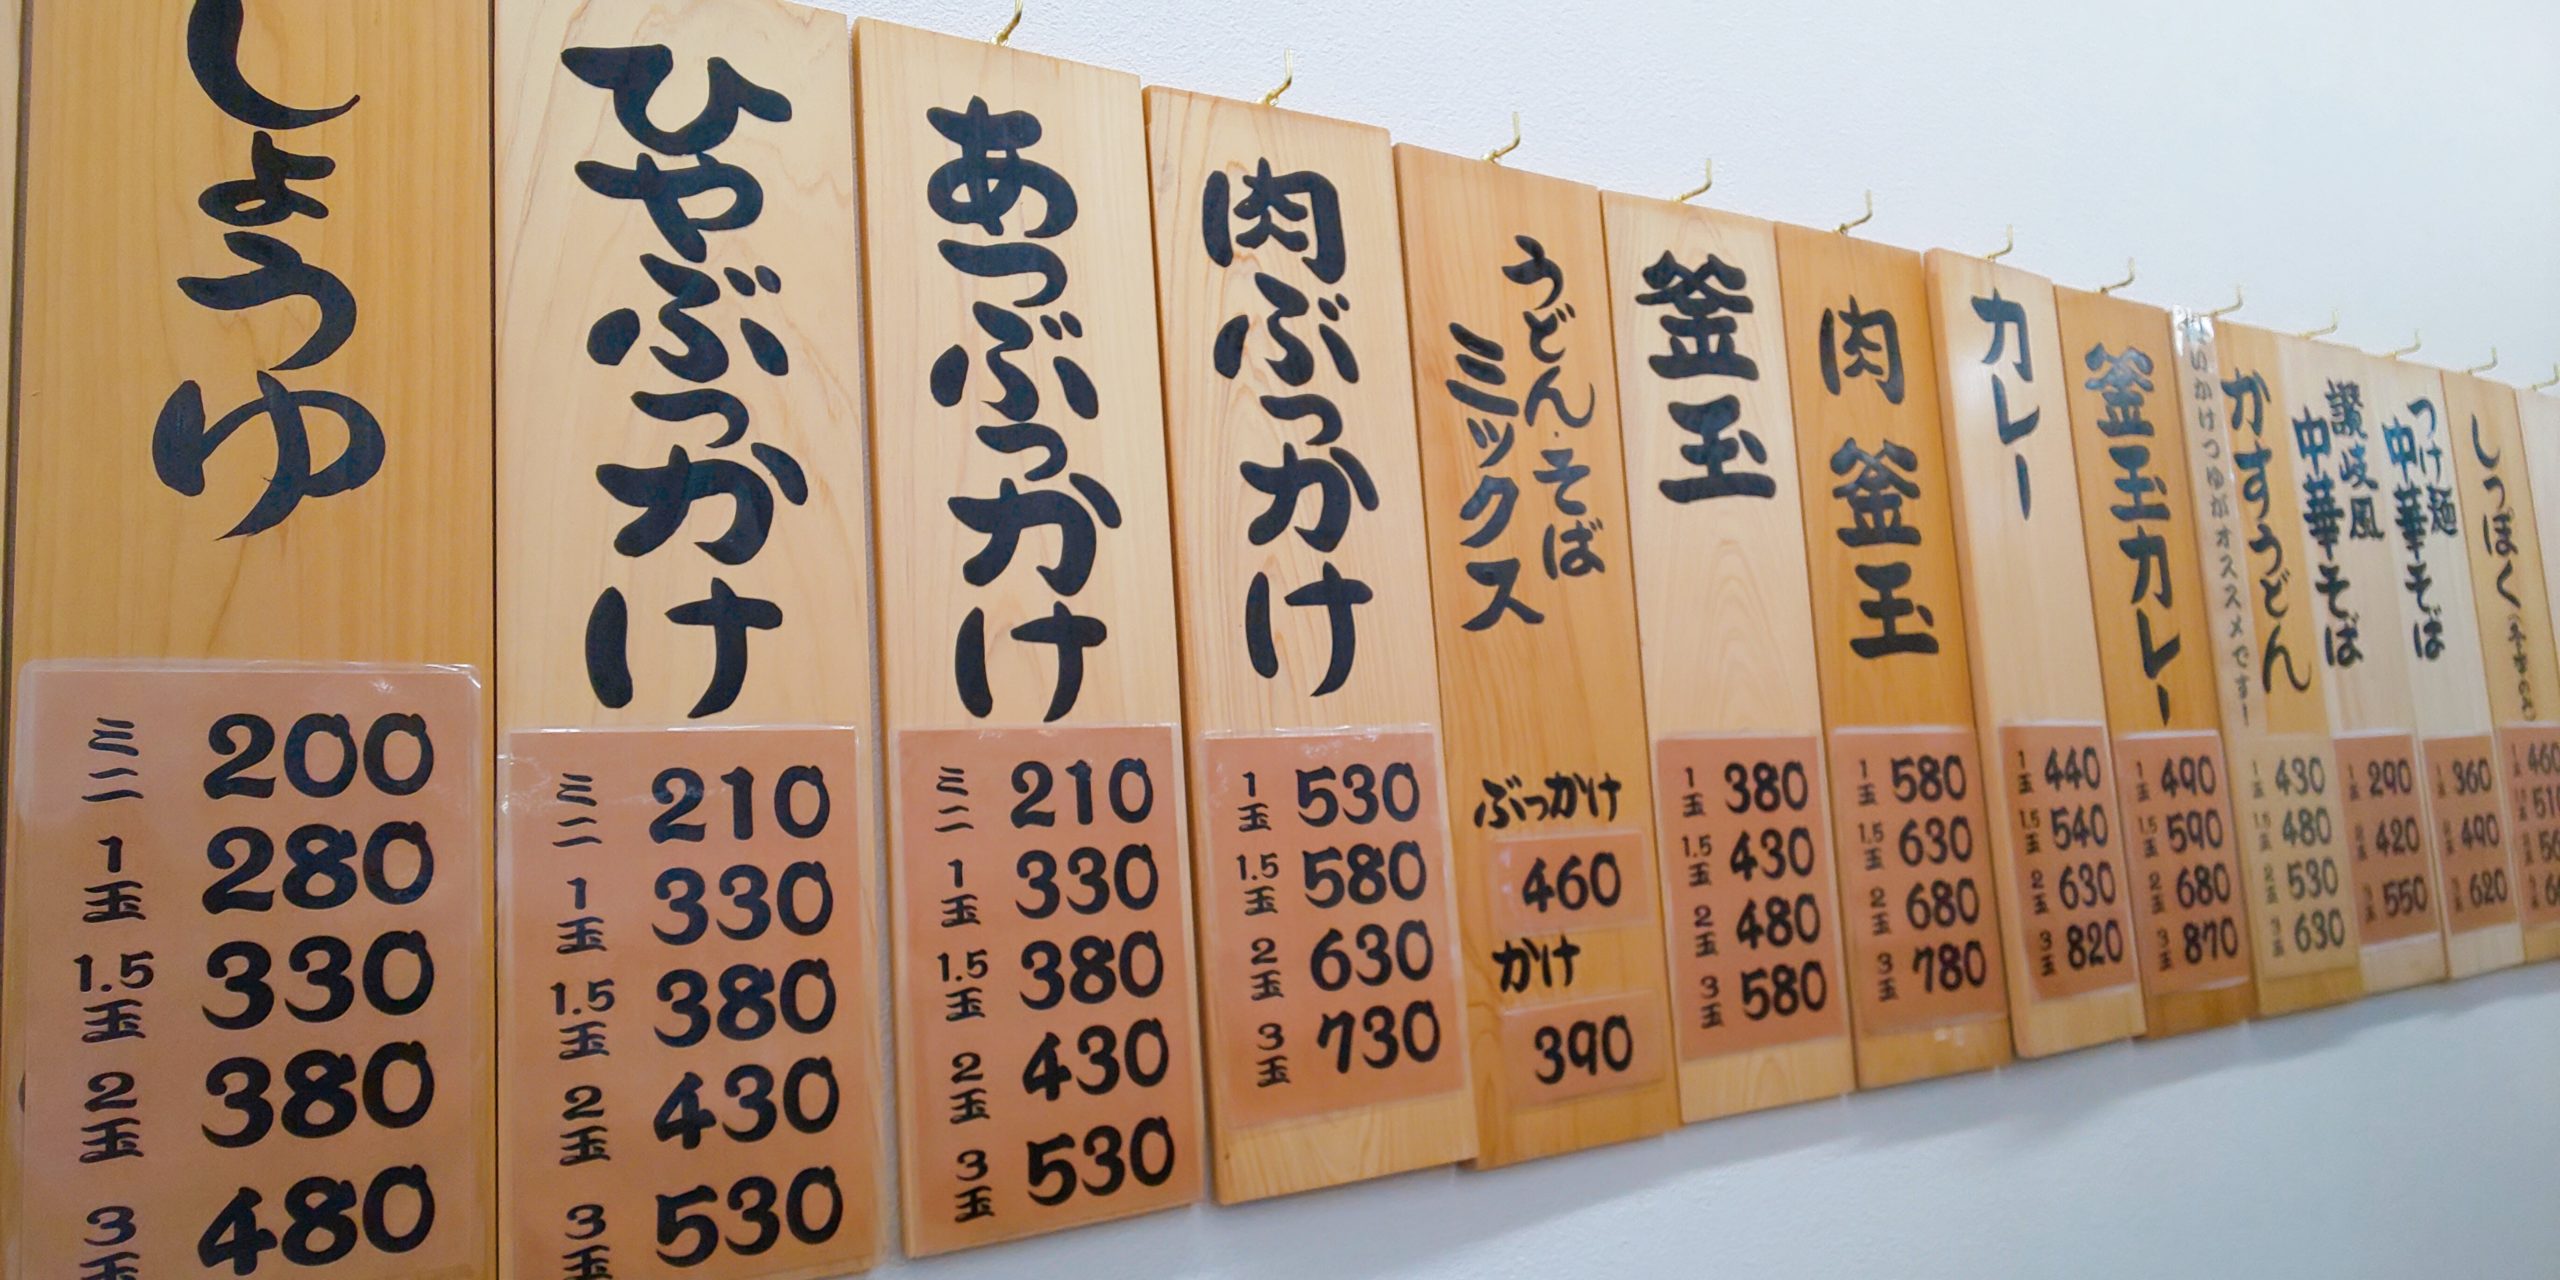 しょうゆ
ミニ 200
1玉 280
1.5玉 330
2玉 380
3玉 480
ひやぶっかけ
ミニ 210
1玉 330
1.5玉 380
2玉 430
3玉 530
あつぶっかけ
ミニ 210
1玉 330
1.5玉 380
2玉 430
3玉 530
肉ぶっかけ
1玉 530
1.5玉 580
2玉 630
3玉 730
うどん・そば
ミックス
ぶっかけ
460
かけ
390
釜玉
1玉 380
1.5玉 430
2玉 480
3玉 580
肉釜玉
1玉 580
1.5玉 630
2玉 680
3玉 780
カレー
1玉 440
1.5玉 540
2玉 630
3玉 820
釜玉カレー
1玉 490
1.5玉 590
2玉 680
3玉 870
かすうどん
かけつゆがオススメです!
1玉 430
1.5玉 480
2玉 530
3玉 630
讃岐風
中華そば
1玉 290
420
550
つけ麺
中華そば
360
490
620
しっぽく
460